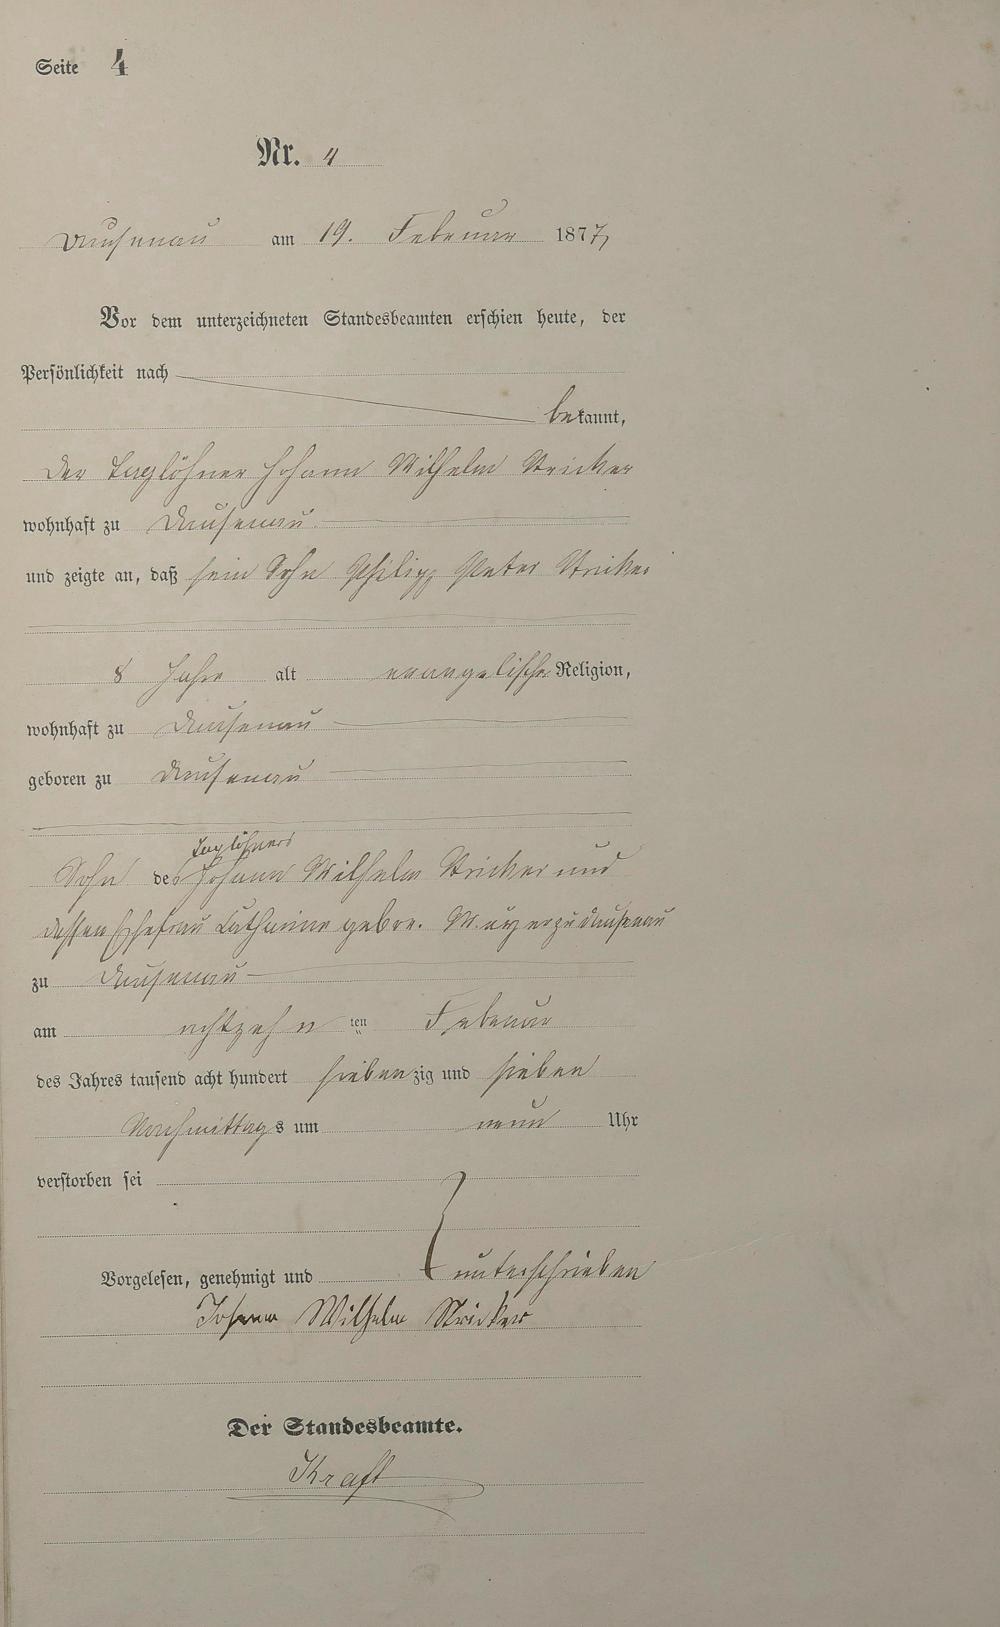 Seite 4
Nr. 4
Dausenau am 19. Februar 1877
Vor dem unterzeichneten Standesbeamten erschien heute, der
Persönlichkeit nach
bekannt,
der Taglöhner Johann Wilhelm Stricker
wohnhaft zu Dausenau
und zeigte an, daß sein Sohn Philipp Peter Stricker
8 Jahre alt evangelische Religion,
wohnhaft zu Dausenau
geboren zu Dausenau
Taglöhners
Sohn des Johann Wilhelm Stricker und
dessen Ehefrau Catharine gebor. Mayer zu Dausenau
zu Dausenau
am achtzehn ten Februar
des Jahres tausend acht hundert siebenzig und sieben
Nachmittags um neun Uhr
verstorben sei
Vorgelesen, genehmigt und unterschrieben
Johann Wilhelm Stricker
Der Standesbeamte.
Kraft